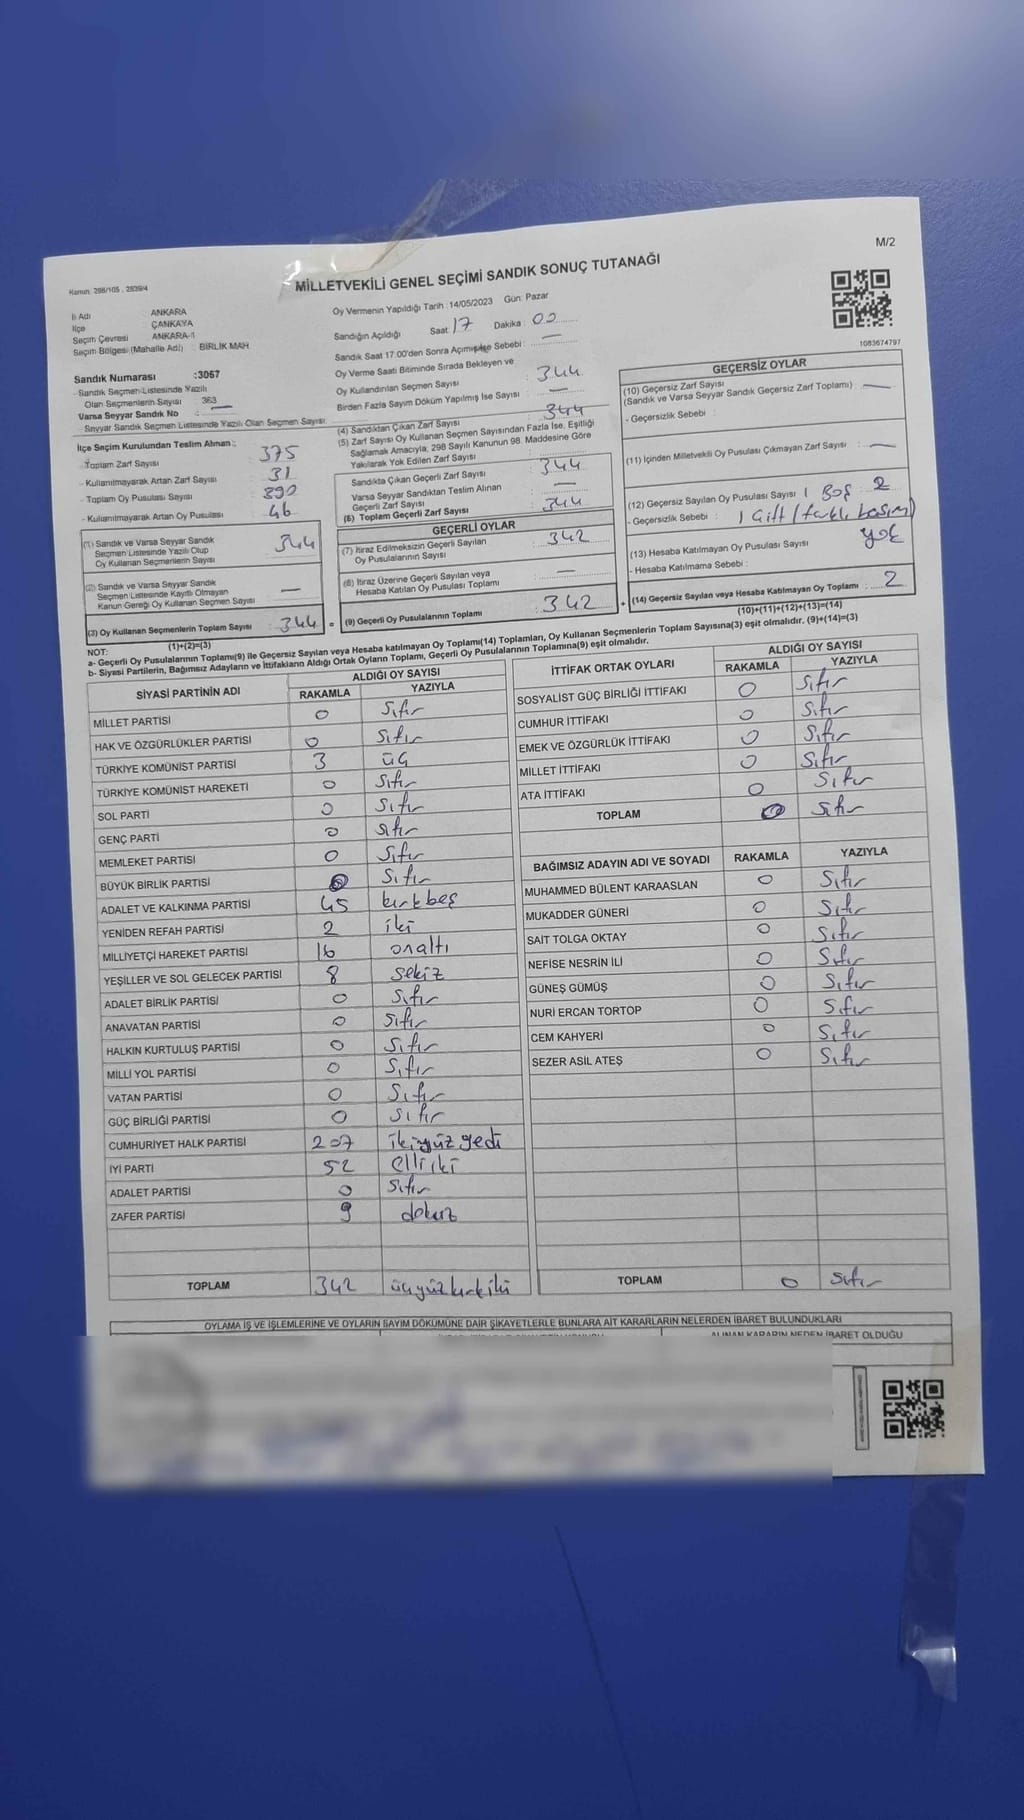 M/2
Kanun: 298/105 , 2839/4
MİLLETVEKİLİ GENEL SEÇİMİ SANDIK SONUÇ TUTANAĞI
İl Adı ANKARA
İlçe ÇANKAYA
Seçim Çevresi ANKARA-1
Seçim Bölgesi (Mahalle Adı) : BİRLİK MAH
Sandık Numarası :3067
- Sandık Seçmen Listesinde Yazılı
Olan Seçmenlerin Sayısı 363
Varsa Seyyar Sandık No : —
- Seyyar Sandık Seçmen Listesinde Yazılı Olan Seçmen Sayısı
İlçe Seçim Kurulundan Teslim Alınan :
- Toplam Zarf Sayısı 375
- Kullanılmayarak Artan Zarf Sayısı 31
- Toplam Oy Pusulası Sayısı 390
- Kullanılmayarak Artan Oy Pusulası 46
(1) Sandık ve Varsa Seyyar Sandık
Seçmen Listesinde Yazılı Olup
Oy Kullanan Seçmenlerin Sayısı 344
(2) Sandık ve Varsa Seyyar Sandık
Seçmen Listesinde Kayıtlı Olmayan
Kanun Gereği Oy Kullanan Seçmen Sayısı —
(3) Oy Kullanan Seçmenlerin Toplam Sayısı 344 =
(1)+(2)=(3)
Oy Vermenin Yapıldığı Tarih : 14/05/2023 Gün: Pazar
Sandığın Açıldığı Saat 17 Dakika : 00
Sandık Saat 17.00'den Sonra Açılmış İse Sebebi : —
Oy Verme Saati Bitiminde Sırada Bekleyen ve
Oy Kullandırılan Seçmen Sayısı : 344
Birden Fazla Sayım Döküm Yapılmış İse Sayısı : —
(4) Sandıktan Çıkan Zarf Sayısı : 344
(5) Zarf Sayısı Oy Kullanan Seçmen Sayısından Fazla İse, Eşitliği
Sağlamak Amacıyla, 298 Sayılı Kanunun 98. Maddesine Göre
Yakılarak Yok Edilen Zarf Sayısı
Sandıkta Çıkan Geçerli Zarf Sayısı : 344
Varsa Seyyar Sandıktan Teslim Alınan
Geçerli Zarf Sayısı : —
(6) Toplam Geçerli Zarf Sayısı : 344
GEÇERLİ OYLAR
(7) İtiraz Edilmeksizin Geçerli Sayılan
Oy Pusulalarının Sayısı : 342
(8) İtiraz Üzerine Geçerli Sayılan veya
Hesaba Katılan Oy Pusulası Toplamı : —
(9) Geçerli Oy Pusulalarının Toplamı : 342 +
1083674797
GEÇERSİZ OYLAR
(10) Geçersiz Zarf Sayısı
(Sandık ve Varsa Seyyar Sandık Geçersiz Zarf Toplamı) : —
- Geçersizlik Sebebi :
(11) İçinden Milletvekili Oy Pusulası Çıkmayan Zarf Sayısı : —
(12) Geçersiz Sayılan Oy Pusulası Sayısı 1 Boş 2
- Geçersizlik Sebebi : 1 Çift (farklı basım)
(13) Hesaba Katılmayan Oy Pusulası Sayısı yok
- Hesaba Katılmama Sebebi :
(14) Geçersiz Sayılan veya Hesaba Katılmayan Oy Toplamı : 2
(10)+(11)+(12)+(13)=(14)
NOT:
a- Geçerli Oy Pusulalarının Toplamı(9) ile Geçersiz Sayılan veya Hesaba katılmayan Oy Toplamı(14) Toplamları, Oy Kullanan Seçmenlerin Toplam Sayısına(3) eşit olmalıdır. (9)+(14)=(3)
b- Siyasi Partilerin, Bağımsız Adayların ve İttifakların Aldığı Ortak Oyların Toplamı, Geçerli Oy Pusulalarının Toplamına(9) eşit olmalıdır.
SİYASİ PARTİNİN ADI ALDIĞI OY SAYISI
RAKAMLA YAZIYLA
MİLLET PARTİSİ 0 Sıfır
HAK VE ÖZGÜRLÜKLER PARTİSİ 0 Sıfır
TÜRKİYE KOMÜNİST PARTİSİ 3 üç
TÜRKİYE KOMÜNİST HAREKETİ 0 Sıfır
SOL PARTİ 0 Sıfır
GENÇ PARTİ 0 Sıfır
MEMLEKET PARTİSİ 0 Sıfır
BÜYÜK BİRLİK PARTİSİ 0 Sıfır
ADALET VE KALKINMA PARTİSİ 45 kırkbeş
YENİDEN REFAH PARTİSİ 2 iki
MİLLİYETÇİ HAREKET PARTİSİ 16 onaltı
YEŞİLLER VE SOL GELECEK PARTİSİ 8 sekiz
ADALET BİRLİK PARTİSİ 0 Sıfır
ANAVATAN PARTİSİ 0 Sıfır
HALKIN KURTULUŞ PARTİSİ 0 Sıfır
MİLLİ YOL PARTİSİ 0 Sıfır
VATAN PARTİSİ 0 Sıfır
GÜÇ BİRLİĞİ PARTİSİ 0 Sıfır
CUMHURİYET HALK PARTİSİ 207 ikiyüzyedi
İYİ PARTİ 52 elliiki
ADALET PARTİSİ 0 Sıfır
ZAFER PARTİSİ 9 dokuz
TOPLAM 342 üçyüzkırkiki
İTTİFAK ORTAK OYLARI ALDIĞI OY SAYISI
RAKAMLA YAZIYLA
SOSYALİST GÜÇ BİRLİĞİ İTTİFAKI 0 Sıfır
CUMHUR İTTİFAKI 0 Sıfır
EMEK VE ÖZGÜRLÜK İTTİFAKI 0 Sıfır
MİLLET İTTİFAKI 0 Sıfır
ATA İTTİFAKI 0 Sıfır
TOPLAM 0 Sıfır
BAĞIMSIZ ADAYIN ADI VE SOYADI RAKAMLA YAZIYLA
MUHAMMED BÜLENT KARAASLAN 0 Sıfır
MUKADDER GÜNERİ 0 Sıfır
SAİT TOLGA OKTAY 0 Sıfır
NEFİSE NESRİN İLİ 0 Sıfır
GÜNEŞ GÜMÜŞ 0 Sıfır
NURİ ERCAN TORTOP 0 Sıfır
CEM KAHYERİ 0 Sıfır
SEZER ASİL ATEŞ 0 Sıfır
TOPLAM 0 Sıfır
OYLAMA İŞ VE İŞLEMLERİNE VE OYLARIN SAYIM DÖKÜMÜNE DAİR ŞİKAYETLERLE BUNLARA AİT KARARLARIN NELERDEN İBARET BULUNDUKLARI
ALINAN KARARIN NEDEN İBARET OLDUĞU